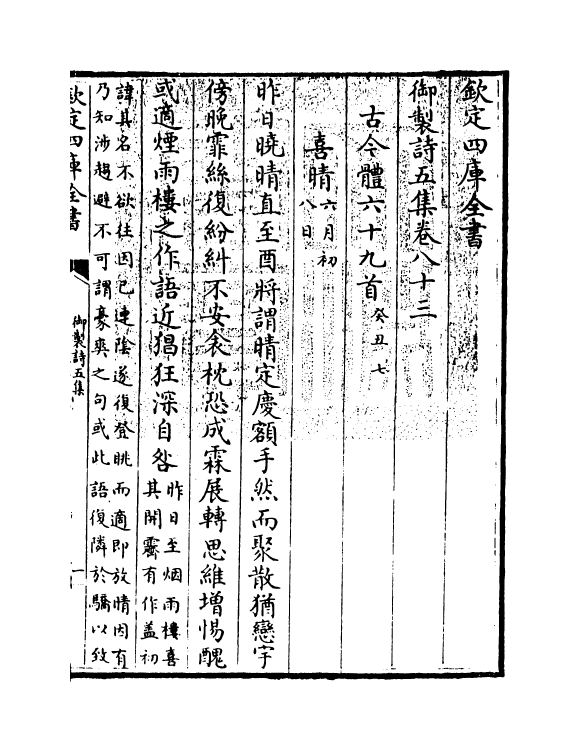 欽定四庫全書
御製詩五集卷八十三
古今體六十九首癸丑七
喜晴六月初八日
昨日曉晴直至酉將謂晴定慶額手然而聚散猶戀宇
傍晚霏絲復紛糾不安衾枕恐成霖展轉思維增惕醜
或適煙雨樓之作語近猖狂深自咎昨日至烟雨樓喜其開霽有作盖初
諱其名不欲往因已連陰遂復登眺而適即放晴因有
乃知涉趨避不可謂豪爽之句或此語復隣於驕以致
欽定四庫全書
御製詩五集
一